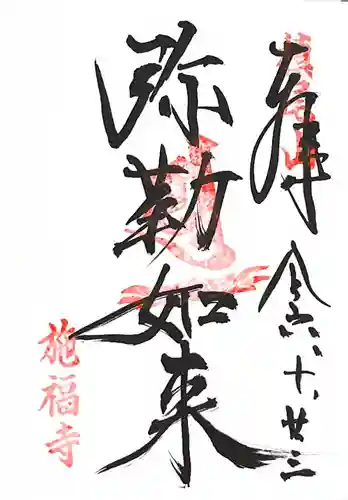 奉拝
令六、十、廿三
弥勒如来
施福寺